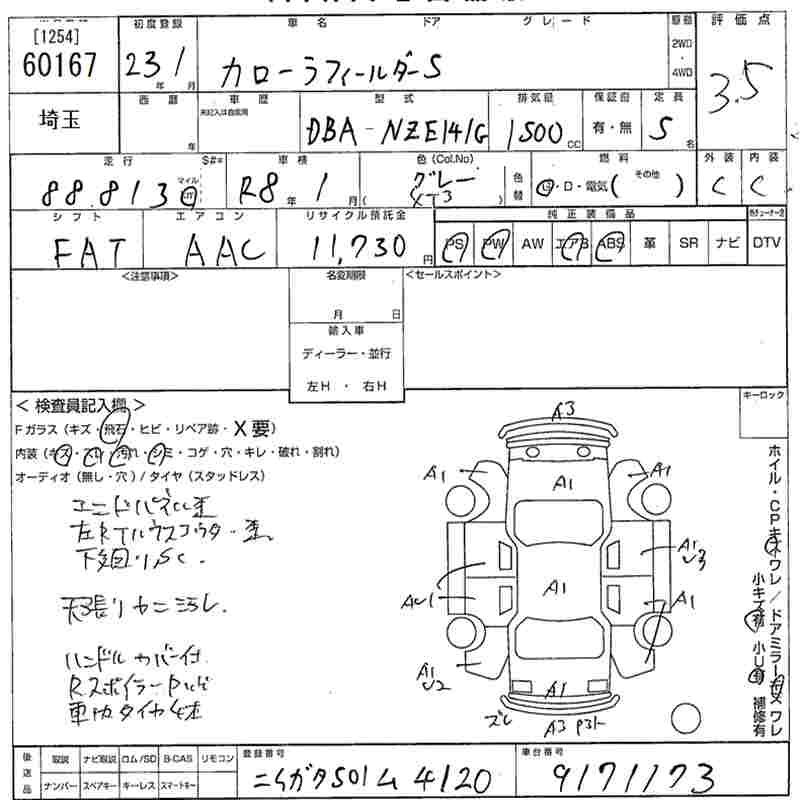 [1254]
60167
初度登録 車名 ドア グレード 駆動 評価点
23年 1月 カローラフィールダーS 2WD・4WD 3.5
埼玉
西暦 車歴 型式 排気量 保証書 定員
年 未記入は自家用 DBA-NZE141G 1500cc 有・無 5名
走行 S#* 車検 色(Col.No) 燃料 外装 内装
88.813 マイル R8年 1月 グレー 色替 ・D・電気( その他 ) C C
シフト エアコン リサイクル預託金 純正装備品
FAT AAC 11,730円 PS PW AW エアB ABS 革 SR ナビ DTV
<注意事項> 名変期限 <セールスポイント>
月 日
輸入車
ディーラー・並行
左H ・ 右H
キーロック
<検査員記入欄>
Fガラス(キズ・飛石・ヒビ・リペア跡・X要)
内装(キズ・スレ・汚れ・シミ・コゲ・穴・キレ・破れ・割れ)
オーディオ(無し・穴)/タイヤ(スタッドレス)
エンドパネル歪
下廻りS.C.
天張りヤニヨゴレ.
ハンドルカバー付
車内タイヤ4本
A3
A1 A1 A1
A1 U3
A1
A1
A1 U2
A1
ズレ
A3
ホイル・CPキズワレ/ドアミラーキズワレ
小キズ有 小U有 補修有
後送品 取説 ナビ取説 ロム/SD B-CAS リモコン
ナンバー スペアキー キーレス スマートキー
登録番号 車台番号
ニイガタ501ム4120 9171173